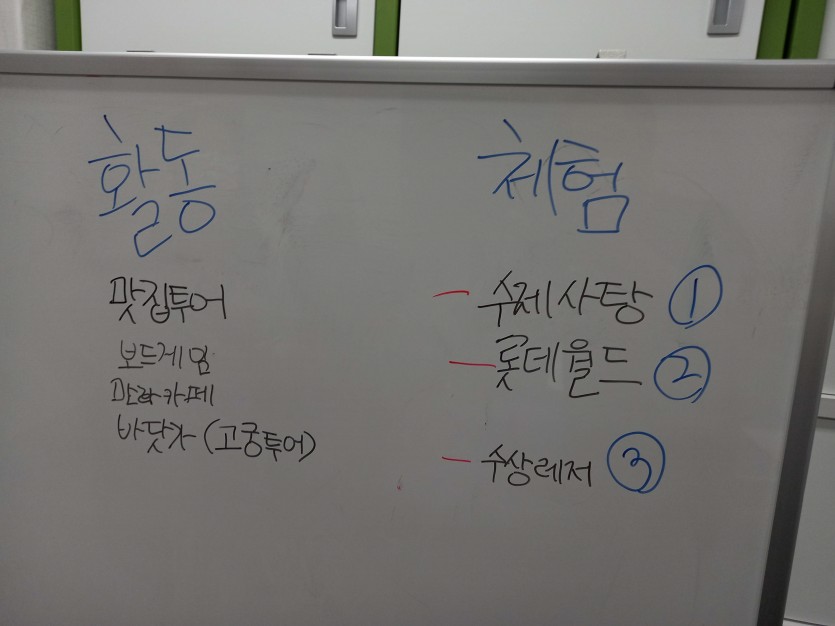 활동
맛집투어
보드게임
만화카페
바닷가 (고궁투어)
체험
- 수제사탕 ①
- 롯데월드 ②
- 수상레저 ③